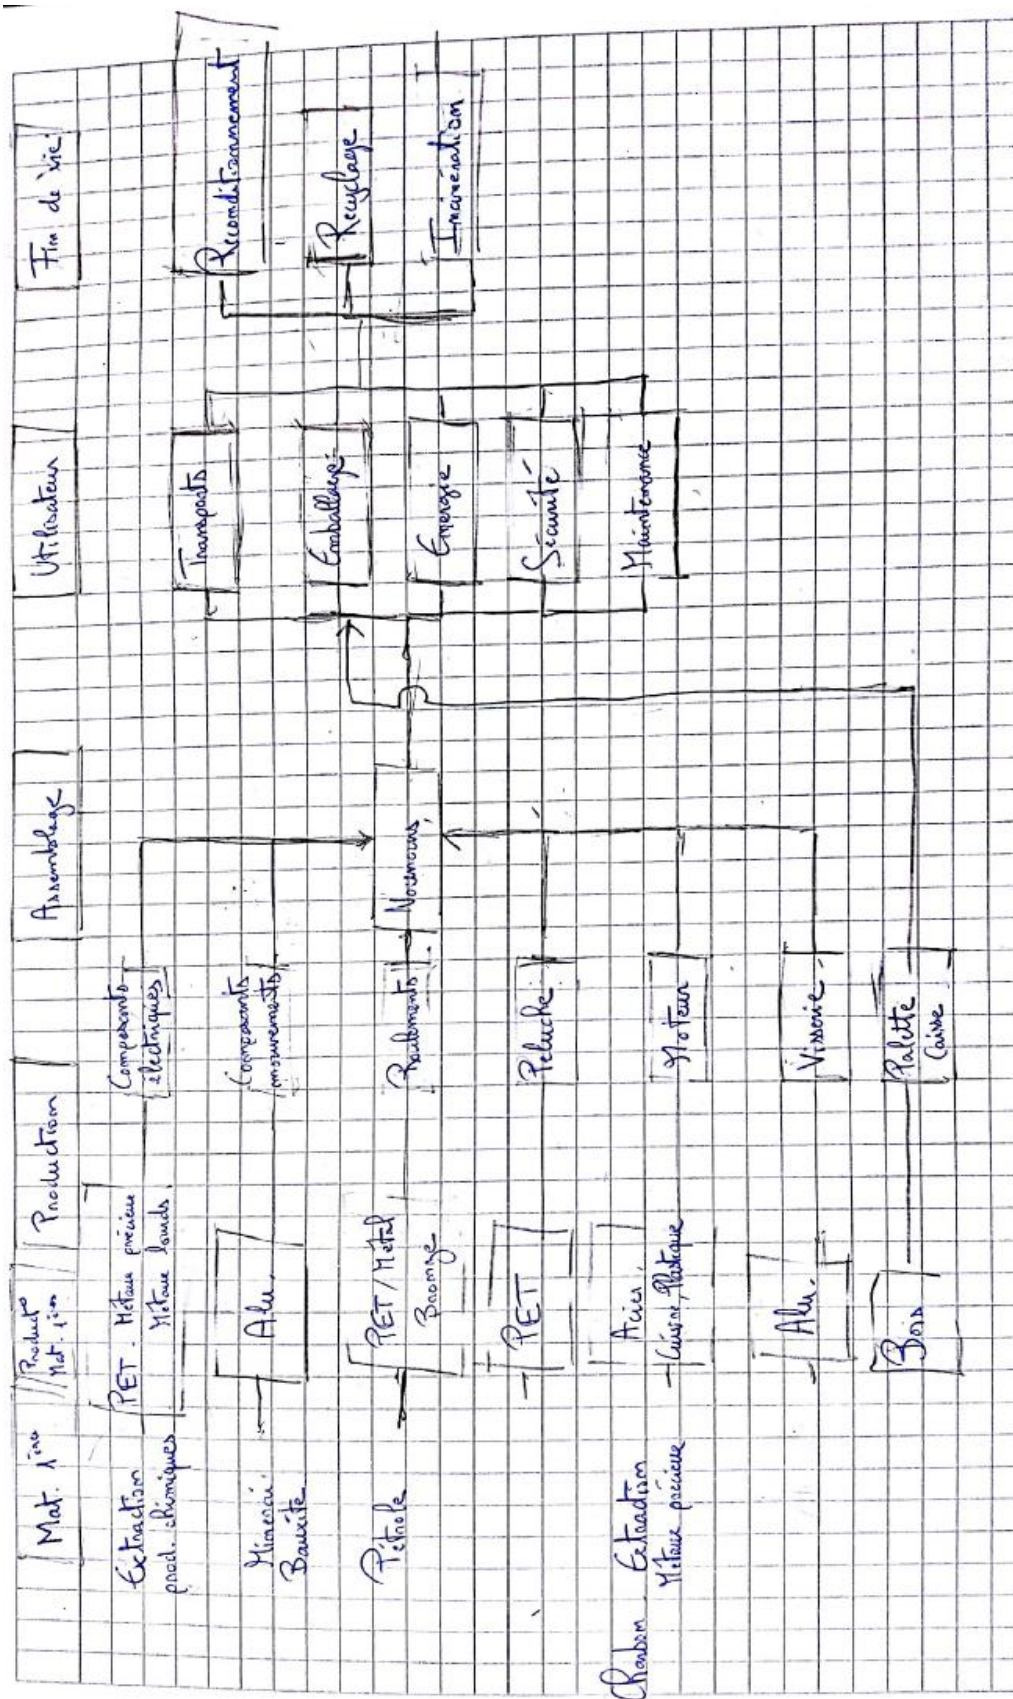 Mat. 1ères
Product°
Mat. 1ères
Production
Assemblage
Utilisateur
Fin de vie
Extraction
prod. chimiques
PET - Métaux précieux
Métaux lourds
Composants
électriques
Minerai
Bauxite
Alu
Composants
mouvements
Pétrole
PET / Métal
Bromage
Roulements
PET
Peluche
Charbon Extraction
Métaux précieux
Acier,
Cuivre, Plastique
Moteur
Alu.
Visserie
Bois
Palette
Caisse
Transports
Emballage
Energie
Sécurité
Maintenance
Reconditionnement
Recyclage
Incinération